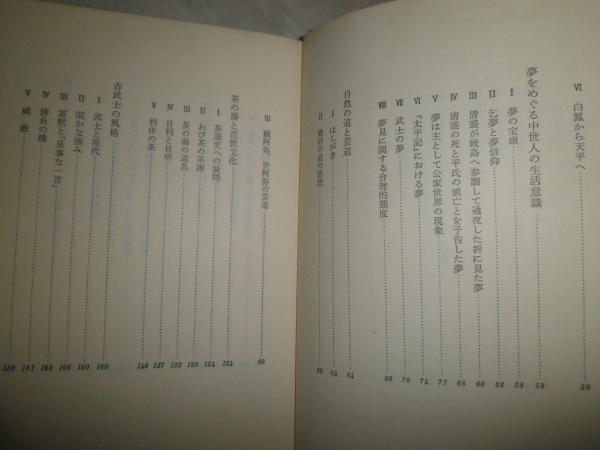 VI 白鳳から天平へ 50
夢をめぐる中世人の生活意識 58
I 夢の宝庫 58
II 乞夢と夢信仰 62
III 清盛が厳島へ参詣して通夜した折に見た夢 66
IV 清盛の死と平氏の滅亡とを予告した夢 68
V 夢は主として公家世界の現象 72
VI 『太平記』における夢 74
VII 武士の夢 76
VIII 夢見に関する合理的態度 80
自然の道と芸道 84
I はしがき 84
II
III 観阿弥、世阿弥の芸道 99
茶の湯と近世文化 124
I 茶道史への疑問 124
II わび茶の系譜 128
III 茶の湯の道具 132
IV 目利と目明 137
V 利休の茶 146
古武士の風格 160
I 武士と現代 160
II 閑かな強み 166
III 寡黙と『見事な一言』 168
IV 勝負の構 181
V 威厳 188